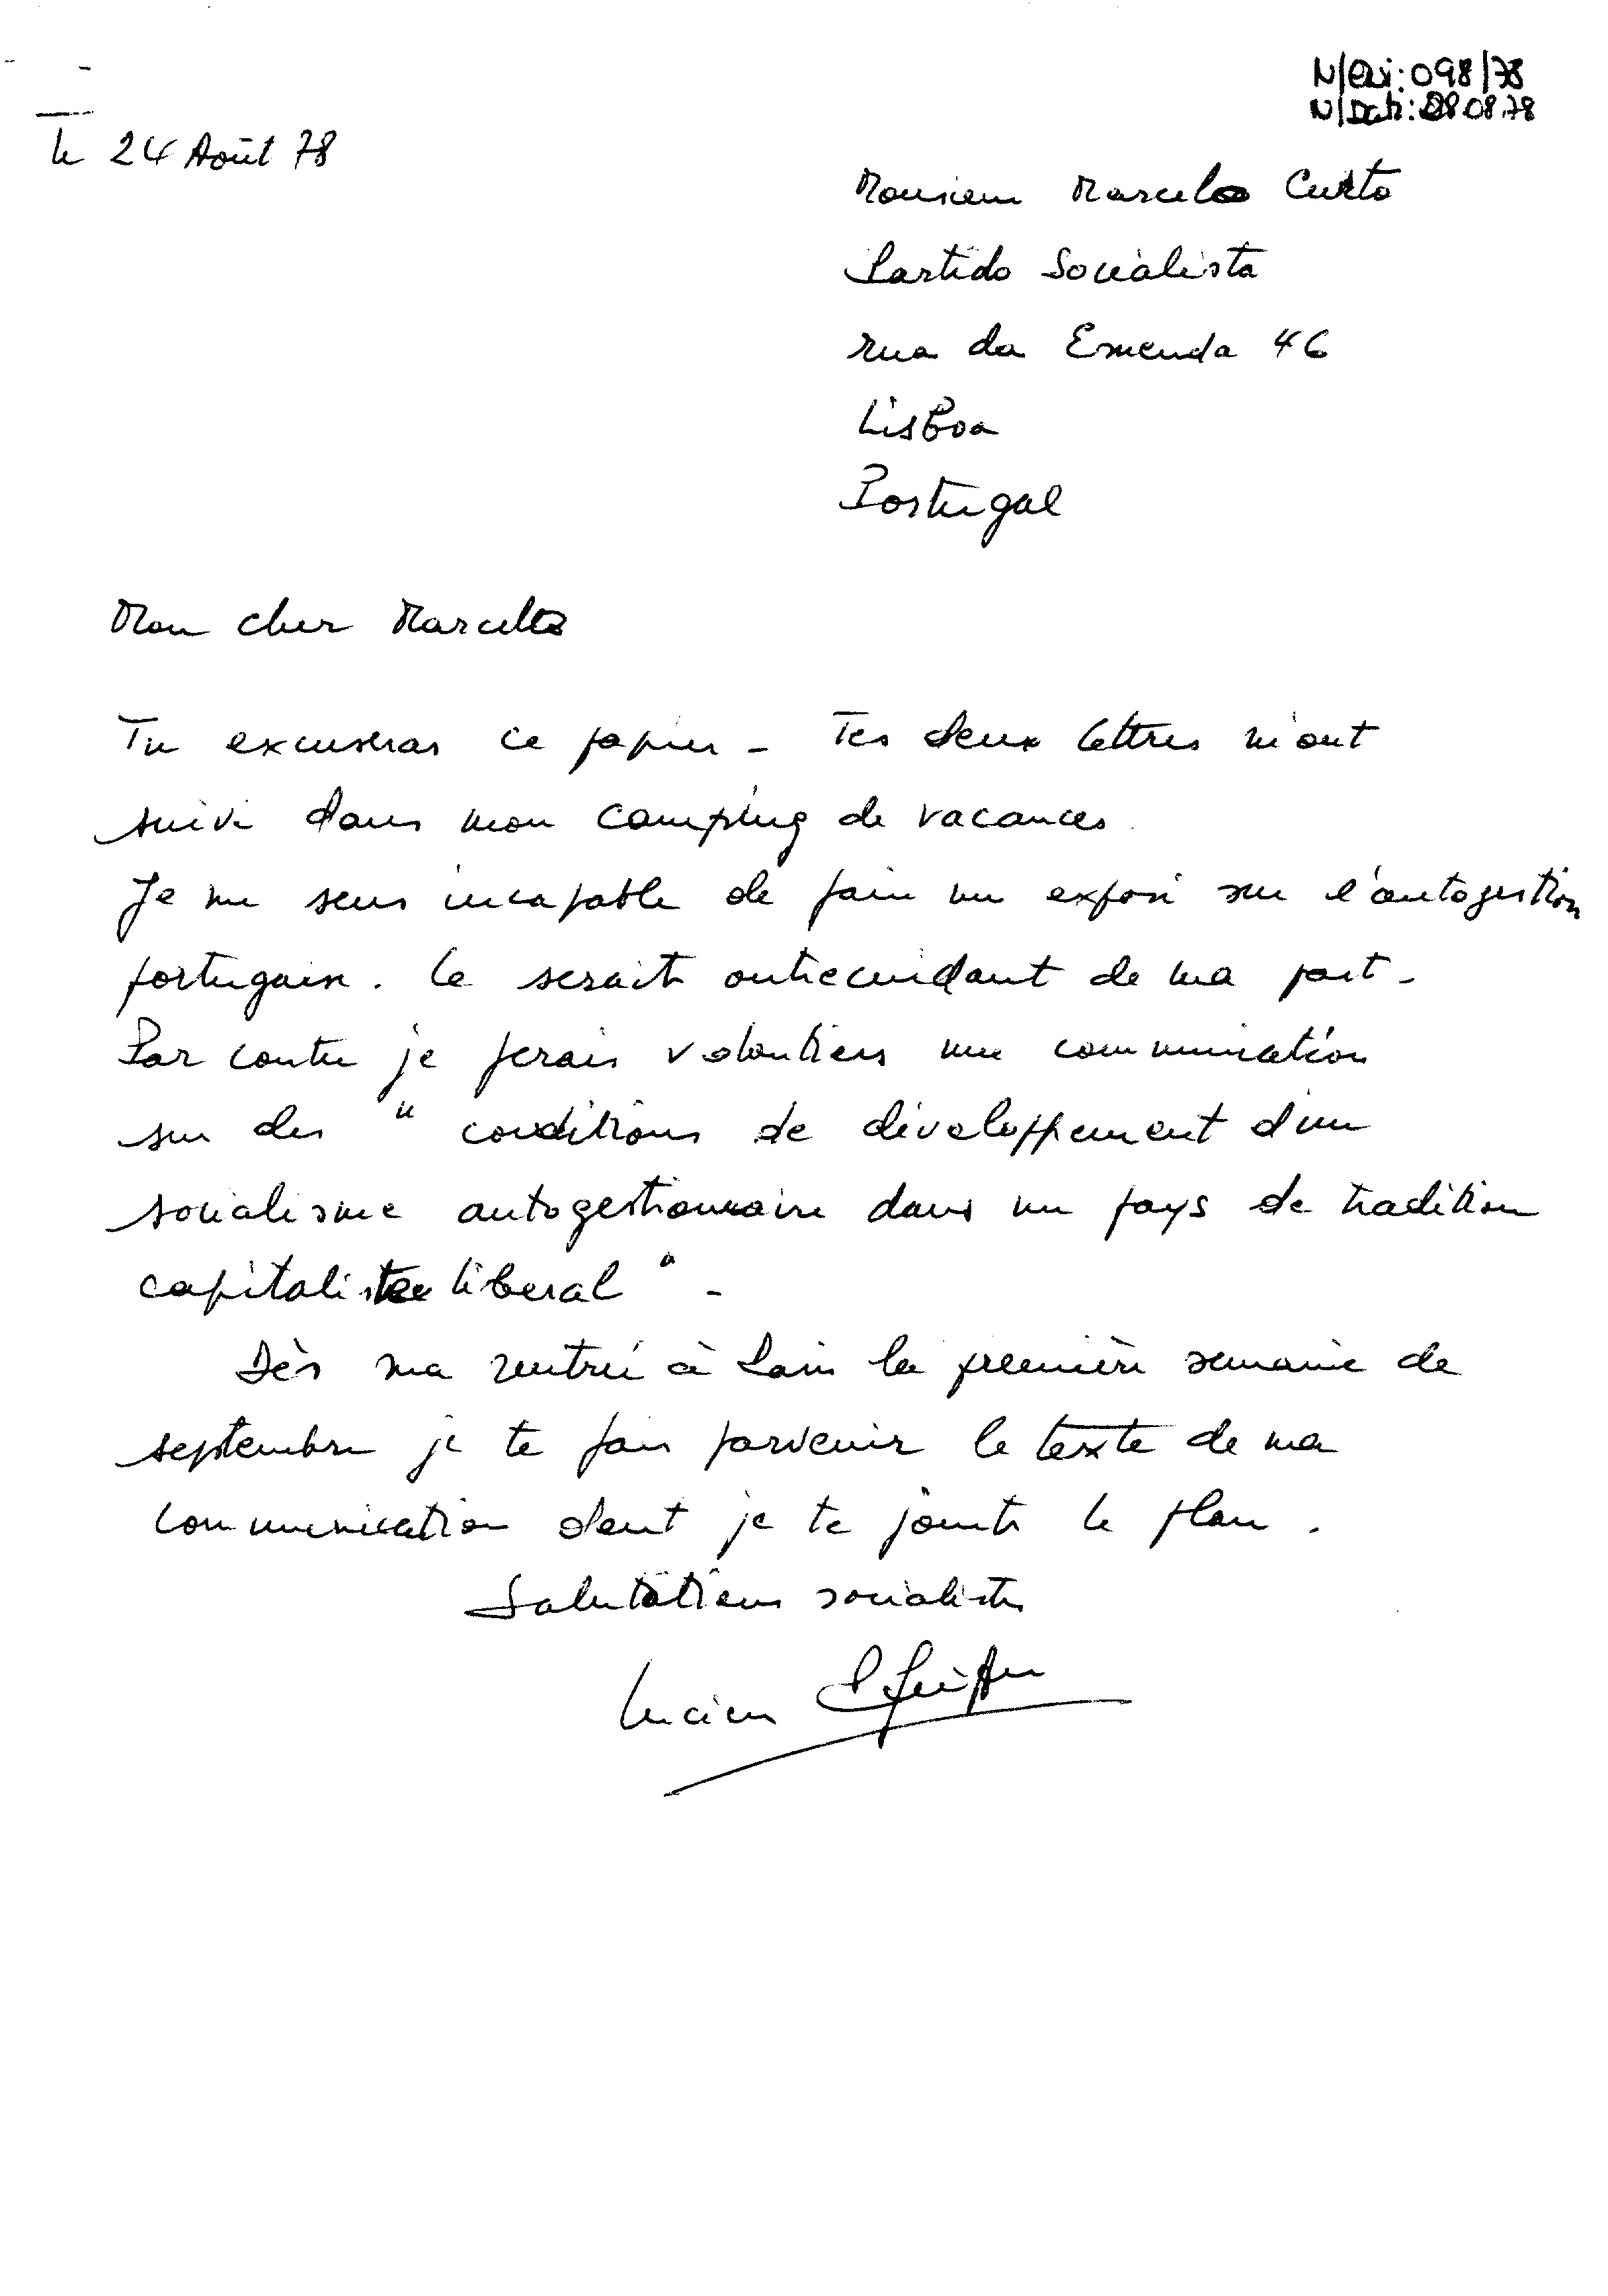 N/Ref: 098/78
N/Data: 28.08.78
le 24 Août 78
Monsieur Marcelo Curto
Partido Socialista
rua da Emenda 46
Lisboa
Portugal
Mon cher Marcelo
Tu excuseras ce papier - Tes deux lettres m'ont
suivi dans mon camping de vacances.
Je me sens incapable de faire un exposé sur l'autogestion
portugaise. Ce serait outrecuidant de ma part -
Par contre je ferais volontiers une communication
sur des "conditions de développement d'un
socialisme autogestionnaire dans un pays de tradition
capitaliste liberal" -
Dès ma rentrée à Paris la première semaine de
septembre je te fais parvenir le texte de ma
communication dont je te joints le plan.
Salutations socialistes
Lucien Pfeiffer